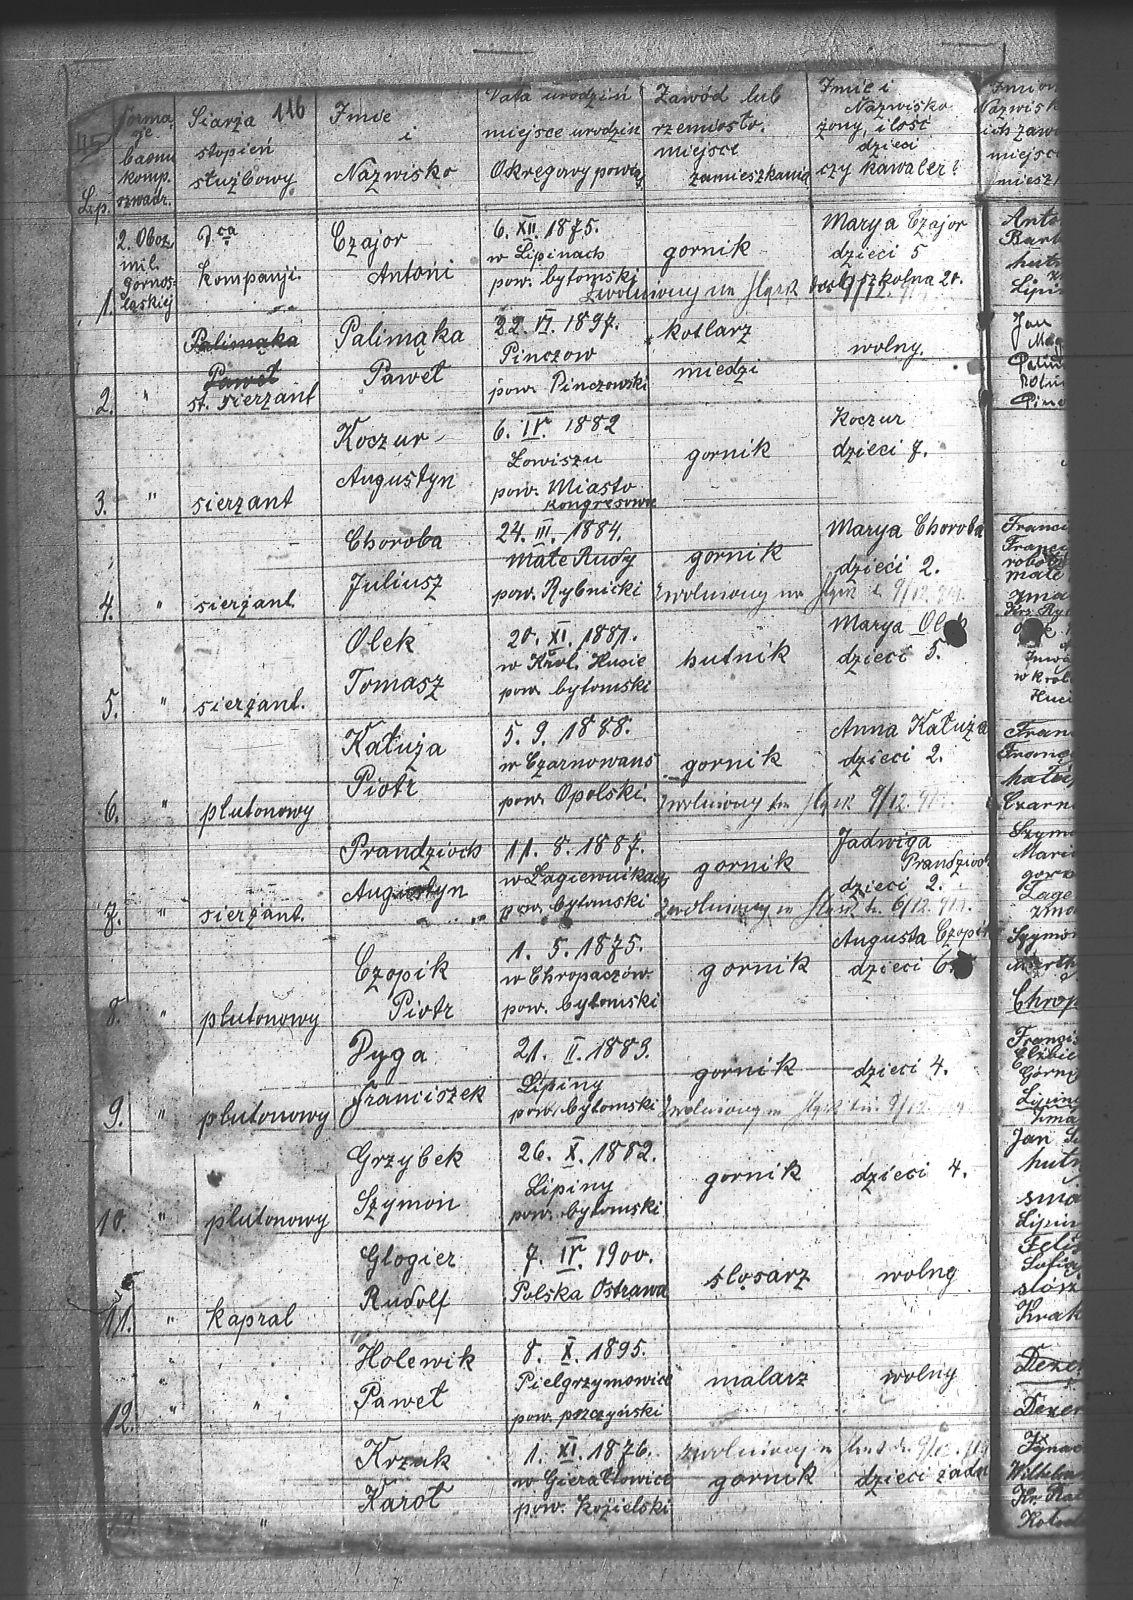 115
Lp.
Forma
cje
baonu
komp.
szwadr.
Szarża 116
stopień
służbowy
Imie
i
Nazwisko
Data urodzin
miejsce urodzin
Okręgowy powiat
Zawód lub
rzemiosło.
miejsce
zamieszkania
Imie i
Nazwisko
żony, ilość
dzieci
czy kawaler?
Imion
Nazwisk
ich zawo
miejsce
mieszk
1.
2. Oboz
mil.
górnoś-
ląskiej
D-ca
kompanji
Czajor
Antoni
6. XII. 1875.
w Lipinach
pow. bytomski
gornik
Marya Czajor
dzieci 5
szkolna 20.
Lipin
2.
"
Palimąka
Paweł
st. sierżant
Palimąka
Paweł
22. VI. 1897.
Pinczow
pow. Pinczowski
kotlarz
miedzi
wolny.
Jan
3.
"
sierżant
Koczur
Augustyn
6. IV. 1882
Łowiszu
pow. Miasto
Kongresowe
gornik
Koczur
dzieci 7.
4.
"
sierżant
Choroba
Juliusz
24. III. 1884.
Małe Rudy
pow. Rybnicki
gornik
Marya Choroba
dzieci 2.
Zwolniony
9/12.
Franci
małe
5.
"
sierżant.
Olek
Tomasz
20. XI. 1881.
w Król. Hucie
pow. bytomski
hutnik
Marya Olek
dzieci 5.
w Król
Huci
6.
"
plutonowy
Kałuża
Piotr
5. 9. 1888.
w Czarnowans
pow. Opolski.
gornik
Anna Kałuża
dzieci 2.
Zwolniony
9/12.
Fran
Franc
Czarn
7.
"
sierżant.
Prandzioch
Augustyn
11. 8. 1887.
w Łagiewnikach
pow. bytomski
gornik
Jadwiga
Prandzioch
dzieci 2.
Zwolniony
6/12.
Szym
Mari
8.
"
plutonowy
Czopik
Piotr
1. 5. 1875.
w Chropaczów.
pow. bytomski
gornik
Augusta Czopik
dzieci 6.
Szymon
Chrop
9.
"
plutonowy
Dyga
Franciszek
21. II. 1883.
Lipiny
pow. bytomski
gornik
dzieci 4.
Zwolniony
9/12.
Francis
Elżbie
Górni
Lipiny
10.
"
plutonowy
Grzybek
Szymon
26. X. 1882.
Lipiny
pow. bytomski
gornik
dzieci 4.
Jan
hutn
Lipin
11.
"
kapral
Glogier
Rudolf
7. IV. 1900.
Polska Ostrawa
slosarz
wolny
Sofia
Krak
12.
"
"
Holewik
Paweł
8. X. 1895.
Pielgrzymowice
pow. pszczyński
malarz
wolny
"
Krzak
Karol
1. XI. 1876.
w Gierałtowice
pow. Kozielski
gornik
dzieci żadn
Zwolniony
Ignac
Wilhelm